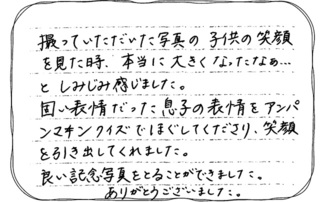 撮っていただいた写真の子供の笑顔
を見た時、本当に大きくなったなぁ…
としみじみ感じました。
固い表情だった息子の表情をアンパ
ンマンクイズでほぐしてくださり、笑顔
を引き出してくれました。
良い記念写真をとることができました。
ありがとうございました。